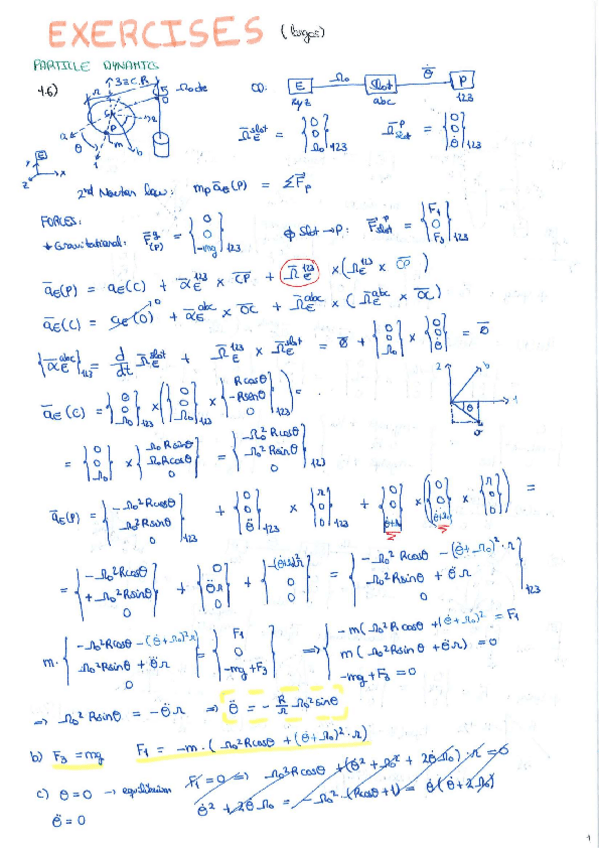 EXERCISES (larges)
PARTICLE DYNAMICS
4.6) 3 ≡ C.R. Ω₀ = cte CD: E —Ω₀— Slot —θ̇— P
xyz abc 123
Ω̄_E^slot = {0, 0, Ω₀}₁₂₃ Ω̄_slot^P = {0, 0, θ̇}₁₂₃
2nd Newton law: m_P ā_E(P) = ΣF̄_P
FORCES:
* Gravitational: F̄^g_(P) = {0, 0, -mg}₁₂₃ ϕ Slot → P: F̄_slot^P = {F₁, 0, F₃}₁₂₃
ā_E(P) = a_E(C) + ᾱ_E^123 × CP + Ω̄_E^123 × (Ω̄_E^123 × CP)
ā_E(C) = a_E(O) + ᾱ_E^abc × OC + Ω̄_E^abc × (Ω̄_E^abc × OC)
{ᾱ_E^abc}₁₂₃ = d/dt Ω̄_E^slot + Ω̄_E^123 × Ω̄_E^slot = 0̄ + {0, 0, Ω₀} × {0, 0, θ̇} = 0̄
ā_E(C) = {0, 0, Ω₀}₁₂₃ × ({0, 0, Ω₀}₁₂₃ × {Rcosθ, -Rsenθ, 0}₁₂₃) =
= {0, 0, Ω₀} × {Ω₀Rsinθ, Ω₀Rcosθ, 0} = {-Ω₀²Rcosθ, Ω₀²Rsinθ, 0}₁₂₃
ā_E(P) = {-Ω₀²Rcosθ, Ω₀²Rsinθ, 0}₁₂₃ + {0, 0, θ̈}₁₂₃ × {r, 0, 0}₁₂₃ + {0, 0, θ̇+Ω₀} × ({0, 0, θ̇+Ω₀} × {r, 0, 0}) =
= {-Ω₀²Rcosθ, +Ω₀²Rsinθ, 0} + {0, θ̈r, 0} + {-(θ̇+Ω₀)²r, 0, 0} = {-Ω₀²Rcosθ - (θ̇+Ω₀)²·r, Ω₀²Rsinθ + θ̈r, 0}₁₂₃
m·{-Ω₀²Rcosθ - (θ̇+Ω₀)²r, Ω₀²Rsinθ + θ̈r, 0} = {F₁, 0, -mg+F₃} ⇒ {-m(Ω₀²Rcosθ + (θ̇+Ω₀)² = F₁
m(Ω₀²Rsinθ + θ̈r) = 0
-mg+F₃ = 0
⇒ Ω₀²Rsinθ = -θ̈r ⇒ θ̈ = -R/r Ω₀²sinθ
b) F₃ = mg F₁ = -m·(Ω₀²Rcosθ + (θ̇+Ω₀)²·r)
c) θ=0 → equilibrium F₁=0 ⇔ Ω₀²Rcosθ + (θ̇² + Ω₀² + 2θ̇Ω₀)·r = 0
θ̈ = 0 θ̇² + 2θ̇Ω₀ = -Ω₀²·(Rcosθ+1) = θ̇(θ̇+2Ω₀)
1